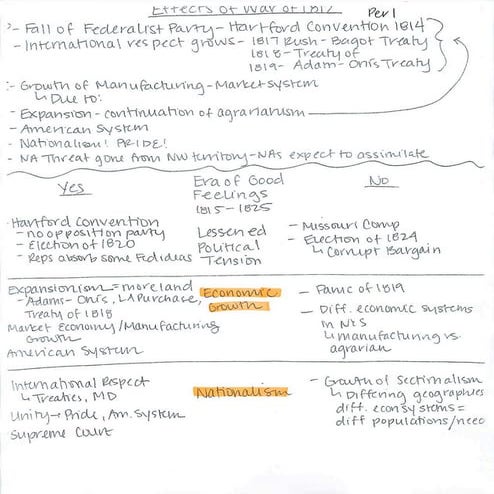 Effects of War of 1812
Per 1
- Fall of Federalist Party - Hartford Convention 1814
- International respect grows - 1817 Rush-Bagot Treaty
1818 - Treaty of
1819 - Adam-Onis Treaty
- Growth of Manufacturing - Market System
↳ Due to:
- Expansion - continuation of agrarianism
- American System
- Nationalism! PRIDE!
- NA Threat gone from NW territory - NAs expect to assimilate
Yes
Era of Good
Feelings
1815-1825
No
Hartford Convention
- no opposition party
- Election of 1820
- Reps absorb some Fed ideas
Lessened
Political
Tension
- Missouri Comp
- Election of 1824
↳ Corrupt Bargain
Expansionism = more land
- Adams-Onis, LA Purchase,
Treaty of 1818
Market Economy/Manufacturing
Growth
American System
Economic
Growth
- Panic of 1819
- Diff. economic systems
in N & S
↳ manufacturing vs.
agrarian
International Respect
↳ Treaties, MD
Unity → Pride, Am. System
Supreme Court
Nationalism
- Growth of Sectionalism
↳ Differing geographies
diff. econ systems =
diff populations/need